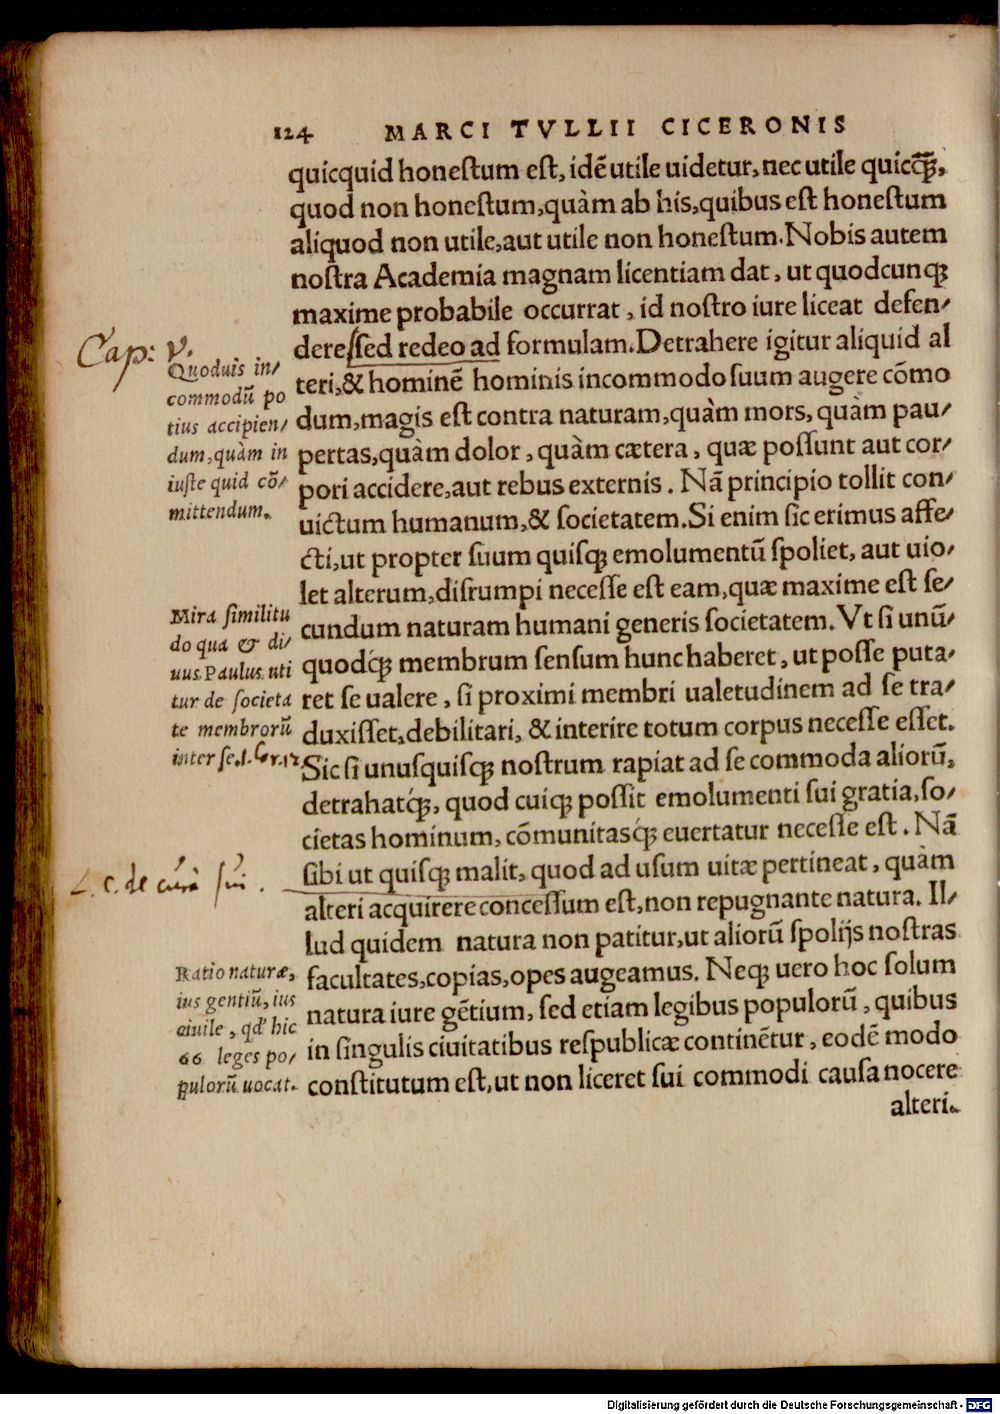 124 MARCI TVLLII CICERONIS
quicquid honeſtum eſt, idẽ utile uidetur, nec utile quicq̃ꝫ,
quod non honeſtum, quàm ab his, quibus eſt honeſtum
aliquod non utile, aut utile non honeſtum. Nobis autem
noſtra Academia magnam licentiam dat, ut quodcunqꝫ
maxime probabile occurrat, id noſtro iure liceat defen/
dere, ſed redeo ad formulam. Detrahere igitur aliquid al
teri, & hominẽ hominis incommodo ſuum augere cõmo
dum, magis eſt contra naturam, quàm mors, quàm pau/
pertas, quàm dolor, quàm cætera, quæ poſſunt aut cor/
pori accidere, aut rebus externis. Nã principio tollit con/
uictum humanum, & ſocietatem. Si enim ſic erimus affe/
cti, ut propter ſuum quiſqꝫ emolumentũ ſpoliet, aut uio/
let alterum, diſrumpi neceſſe eſt eam, quæ maxime eſt ſe/
cundum naturam humani generis ſocietatem. Vt ſi unũ/
quodq́ꝫ membrum ſenſum hunc haberet, ut poſſe puta/
ret ſe ualere, ſi proximi membri ualetudinem ad ſe tra/
duxiſſet, debilitari, & interire totum corpus neceſſe eſſet.
Sic ſi unuſquiſqꝫ noſtrum rapiat ad ſe commoda aliorũ,
detrahatq́ꝫ, quod cuiqꝫ poſſit emolumenti ſui gratia, ſo/
cietas hominum, cõmunitasq́ꝫ euertatur neceſſe eſt. Nã
ſibi ut quiſqꝫ malit, quod ad uſum uitæ pertineat, quàm
alteri acquirere conceſſum eſt, non repugnante natura. Il/
lud quidem natura non patitur, ut aliorũ ſpolijs noſtras
facultates, copias, opes augeamus. Neqꝫ uero hoc ſolum
natura iure gẽtium, ſed etiam legibus populorũ, quibus
in ſingulis ciuitatibus reſpublicæ continẽtur, eodẽ modo
conſtitutum eſt, ut non liceret ſui commodi cauſa nocere
alteri.
Cap: V.
Quoduis in/
commodũ po
tius accipien/
dum, quàm in
iuſte quid cõ/
mittendum.
Mira ſimilitu
do qua & di/
uus Paulus uti
tur de ſocieta
te membrorũ
inter ſe. 1. Cor. 12.
L. c. de cura ſui.
Ratio naturæ,
ius gentiũ, ius
ciuile, qd' hic
66 leges po/
pulorũ uocat.
Digitalisierung gefördert durch die Deutsche Forschungsgemeinschaft - DFG